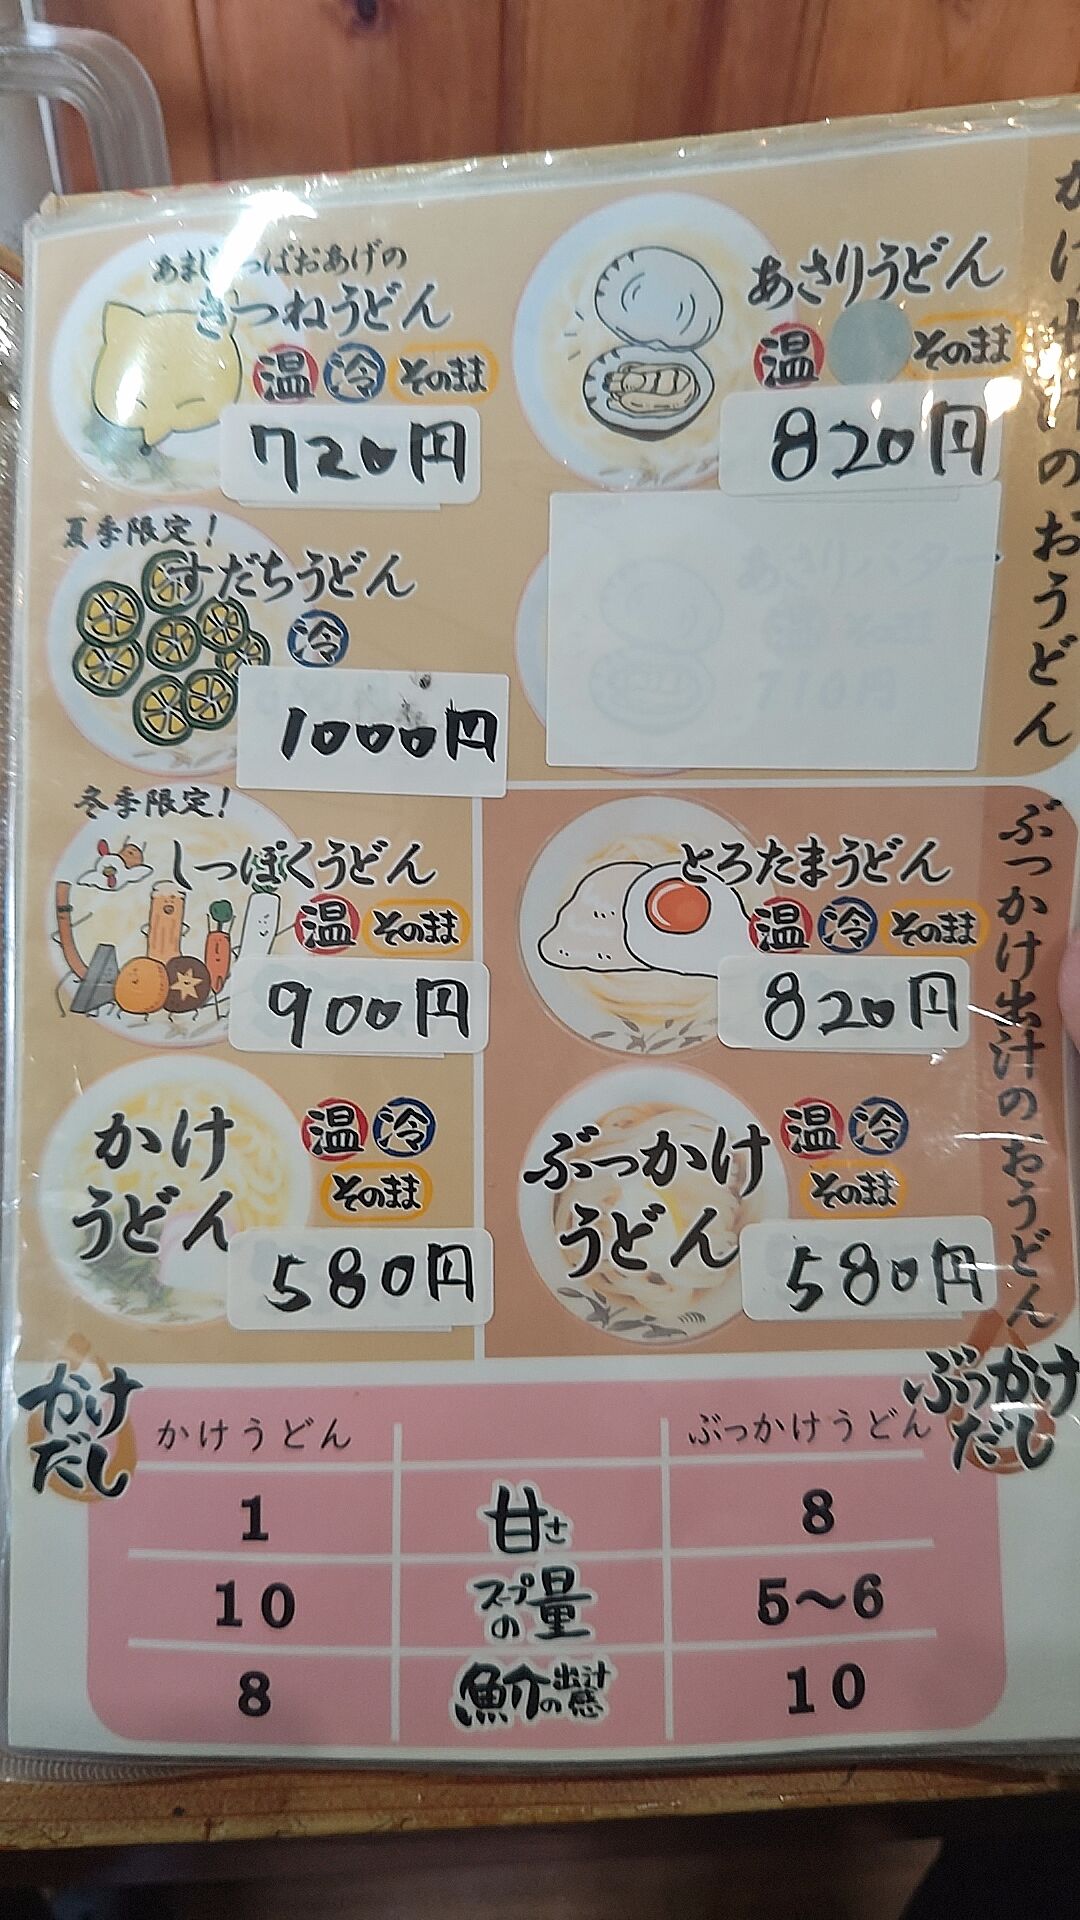 かけ出汁のおうどん
おあげの
きつねうどん
温 冷 そのまま
720円
あさりうどん
温 そのまま
820円
夏季限定!
すだちうどん
冷
1000円
冬季限定!
しっぽくうどん
温 そのまま
900円
かけ
うどん
温 冷
そのまま
580円
ぶっかけ出汁のおうどん
とろたまうどん
温 冷 そのまま
820円
ぶっかけ
うどん
温 冷
そのまま
580円
かけ
だし
ぶっかけ
だし
かけうどん ぶっかけうどん
1 甘さ 8
10 スープの量 5〜6
8 魚介の出汁感 10